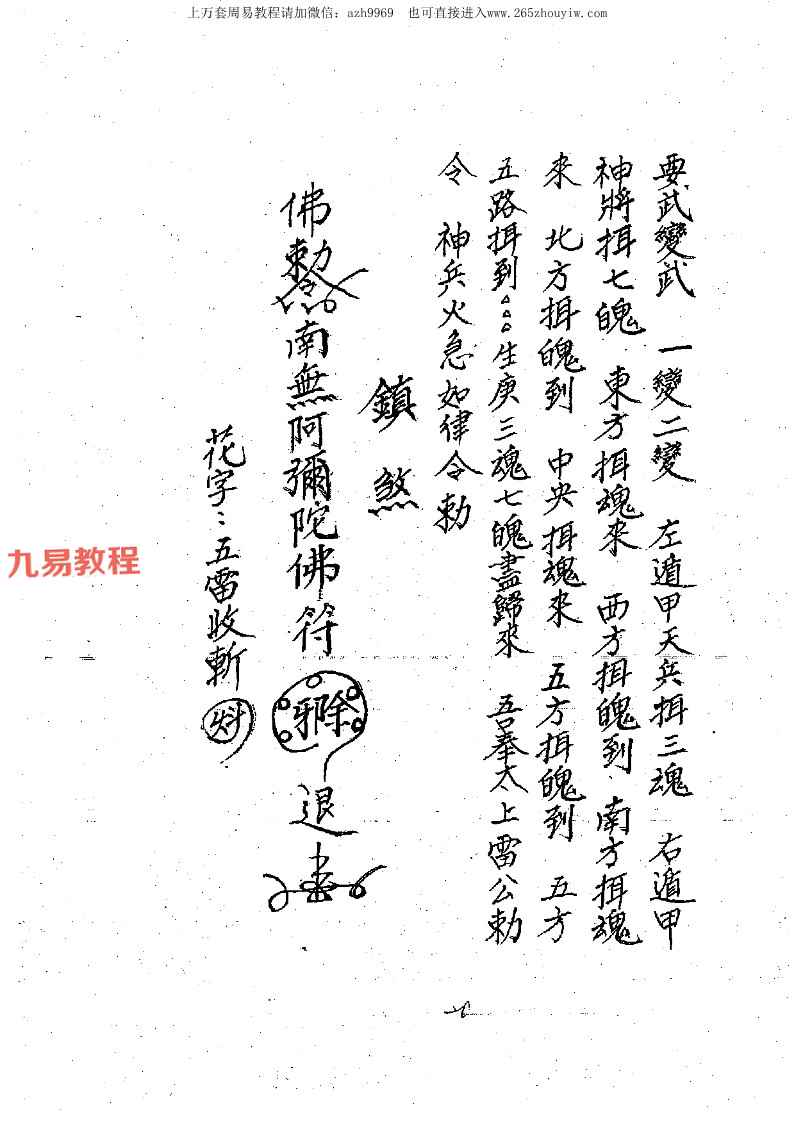 上万套周易教程请加微信：azh9969　也可直接进入www.265zhouyiw.com
要武變武　一變二變　左遁甲天兵揖三魂　右遁甲
神將揖七魄　東方揖魂來　西方揖魄到　南方揖魂
來　北方揖魄到　中央揖魂來　五方揖魄到　五方
五路揖到。。。生庚三魂七魄盡歸來　吾奉太上雷公勅
令　神兵火急如律令勅
鎮煞
佛勅令南無阿彌陀佛符　除邪　退
花字：五雷收斬
九易教程